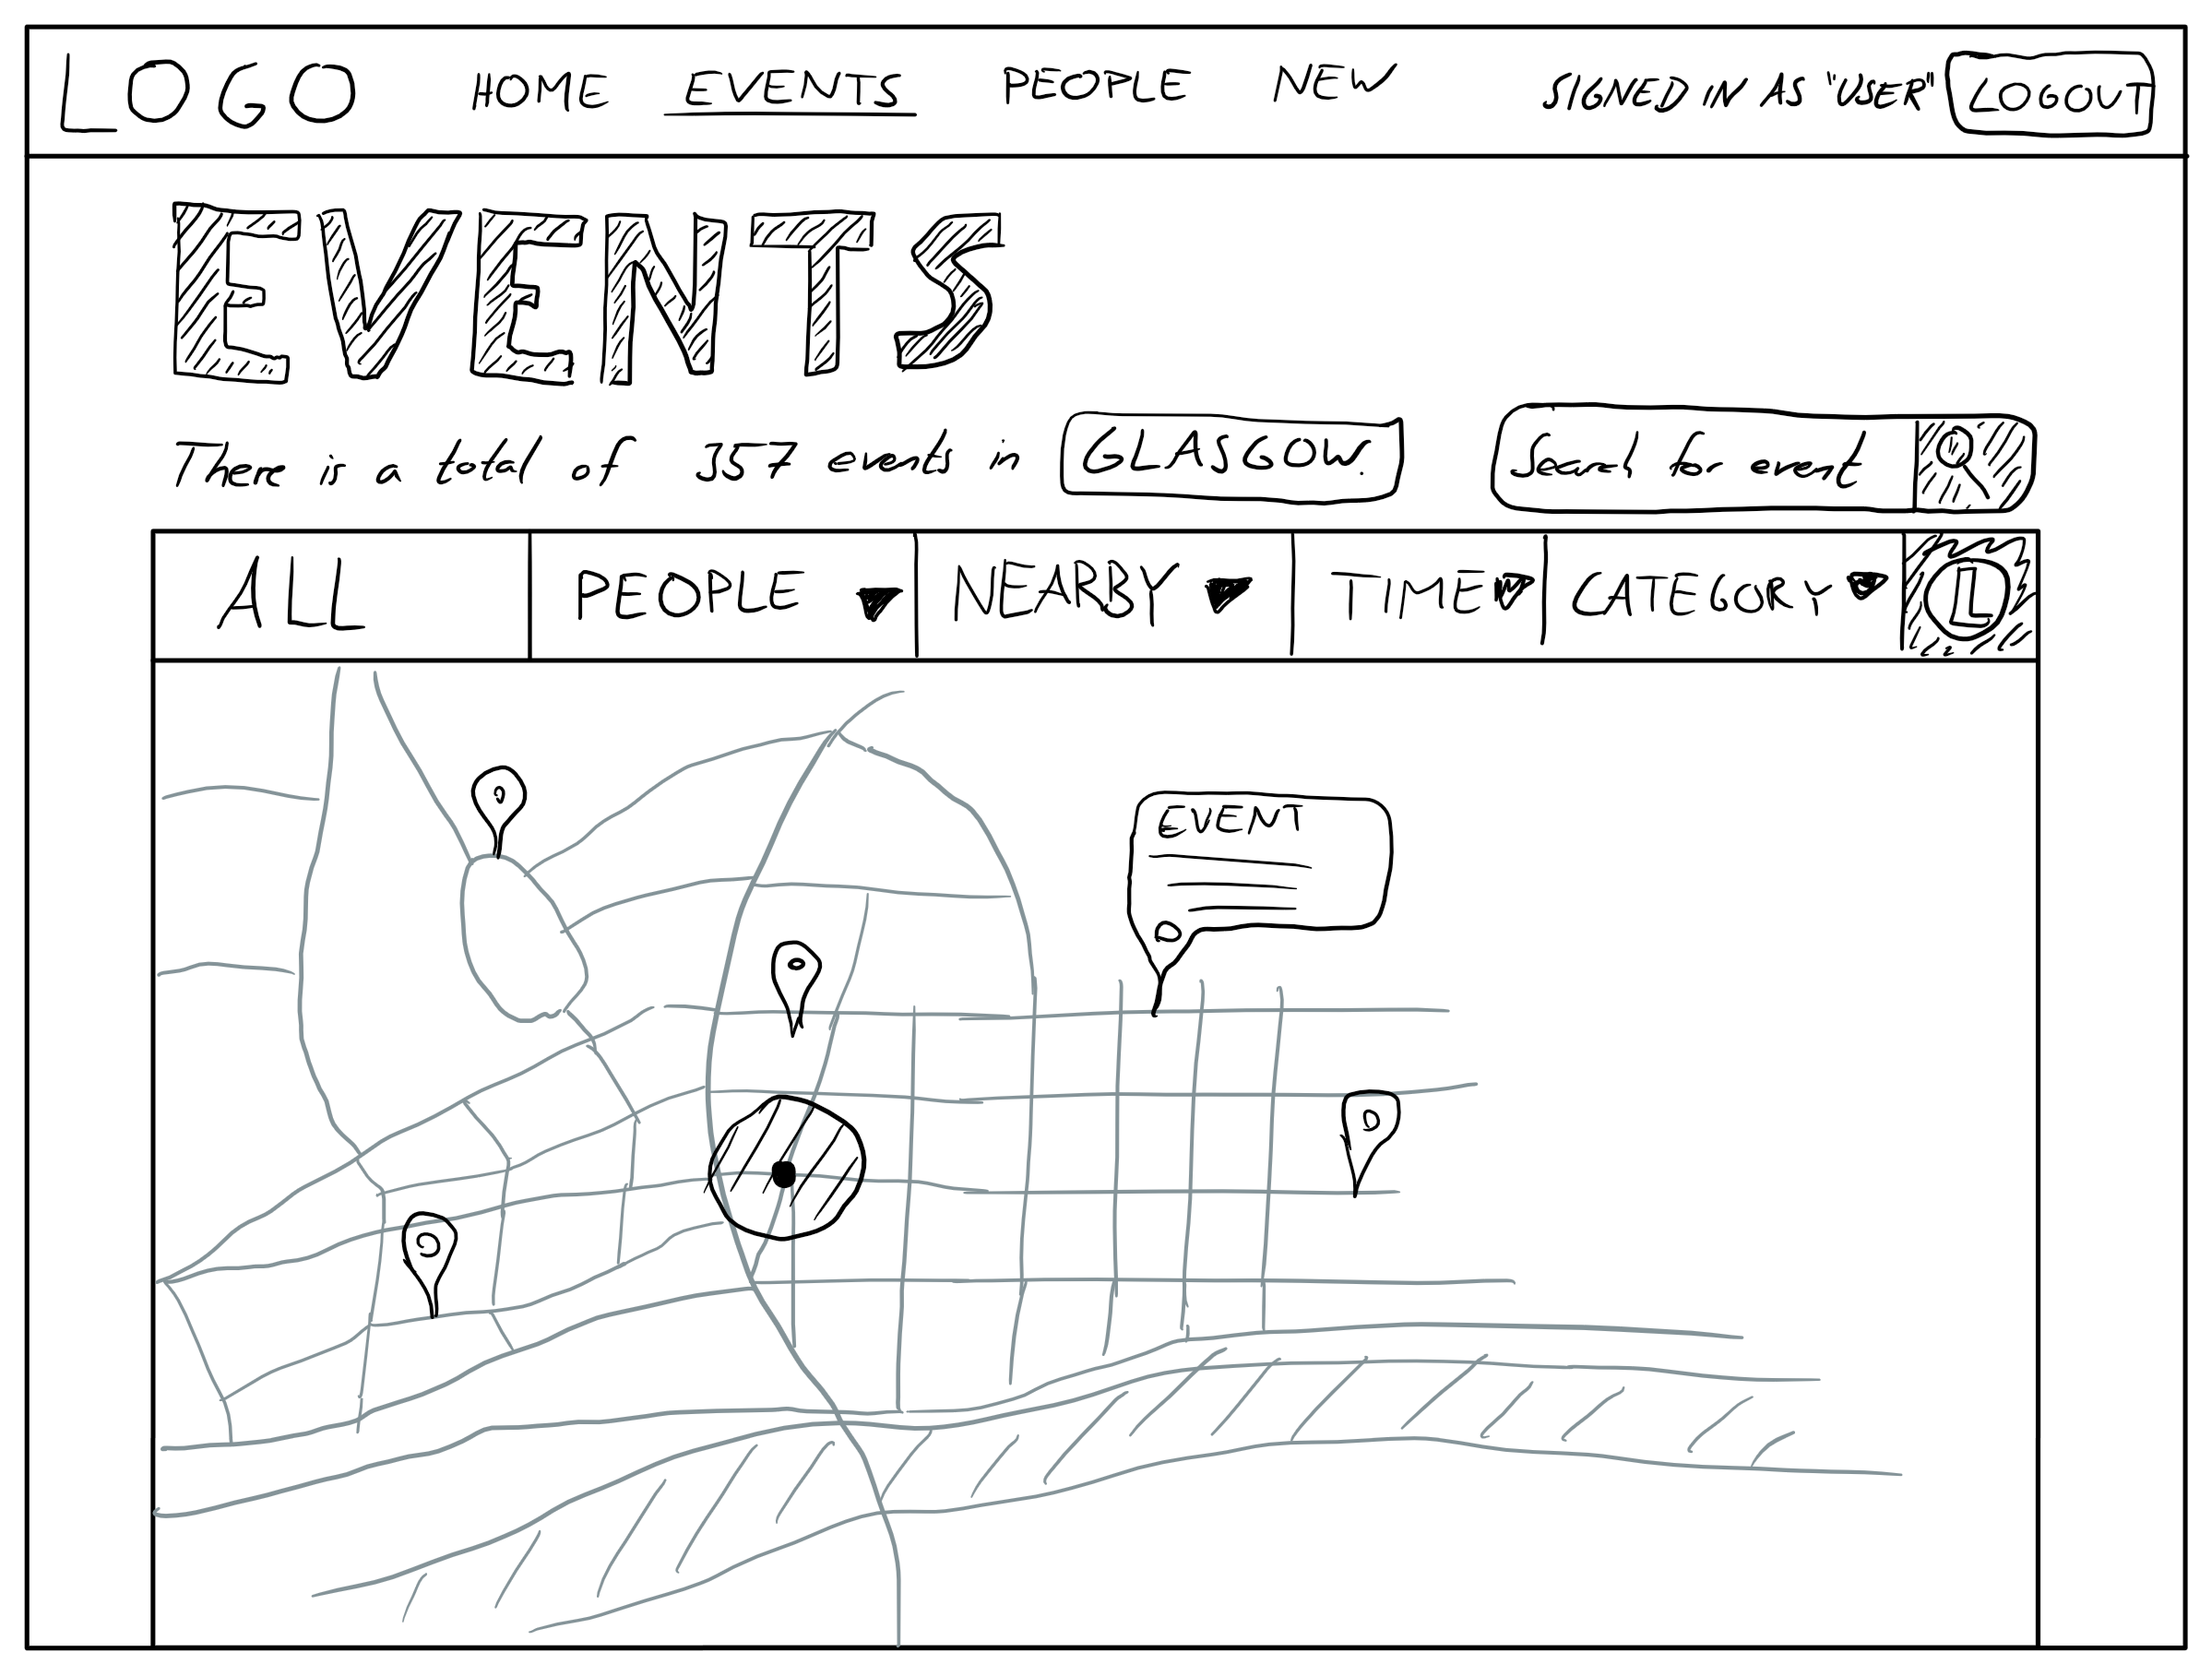 LOGO HOME EVENTS PEOPLE NEW SIGNED IN AS "USER" LOGOUT
EVENTS
There is a total of 357 events in GLASGOW. Search for event
ALL PEOPLE NEARBY TIME CATEGORY
EVENT